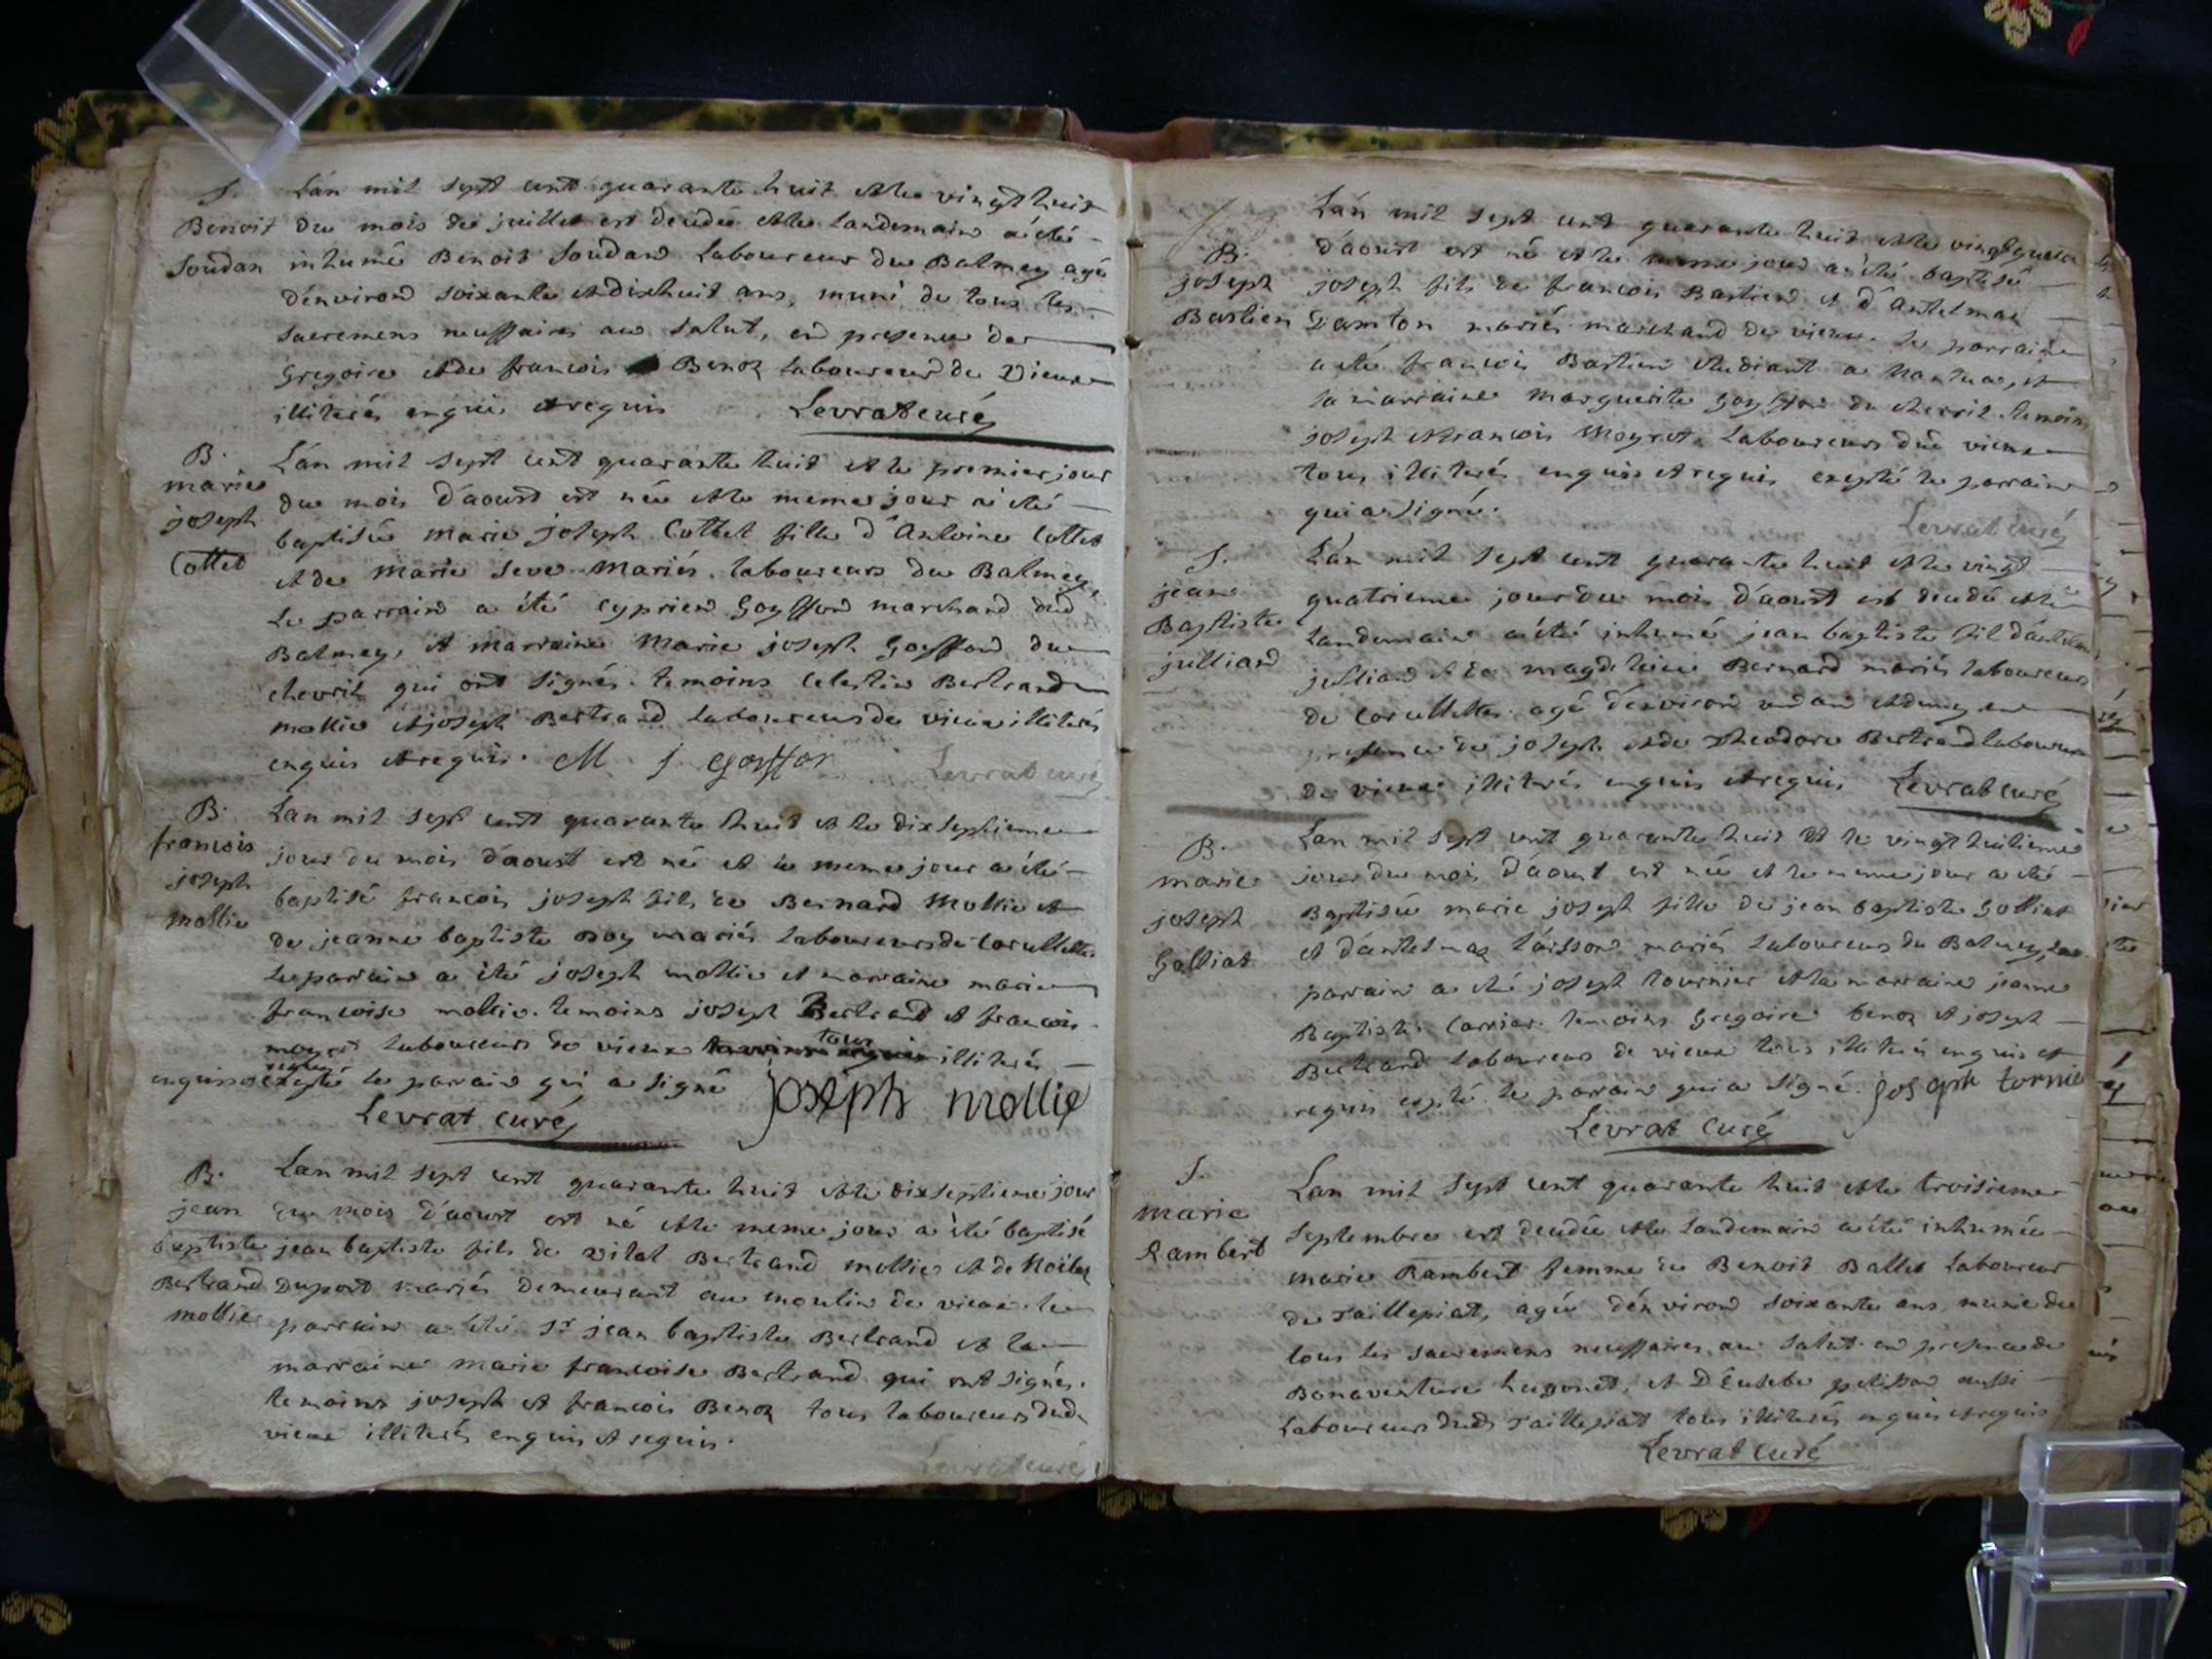 S.
Benoit
Soudan
Lán mil sept cent quarante huit et le vingt huit
du mois de juillet est decedé et le landemain a été
inhumé Benoit Soudan Laboureur du Balmey agé
d'environ soixante et dixhuit ans, muni de tous les
sacremens necessaires au salut, en presence de
Gregoire et de francois Benoz laboureurs de Vieux
illiterés enquis et requis Levrat curé
B.
marie
joseph
Collet
Lán mil sept cent quarante huit et le premier jour
du mois d'aoust est née et le meme jour a été
baptisée marie joseph Collet fille d'Antoine Collet
et de marie seve mariés laboureurs du Balmey,
Le parrain a été Cyprien Goyffon marchand dud
Balmey, et marraine Marie joseph Goyffon du
chevril qui ont signés. temoins Celestin Bertrand
mollie et joseph Bertrand laboureurs de vieux illiterés
enquis et requis. M j goyffon Levrat curé
B.
francois
joseph
mollie
Lan mil sept cent quarante huit et le dixseptieme
jour du mois d'aoust est né et le meme jour a été
baptisé francois joseph fils de Bernard Mollie et
de jeanne baptiste Roy mariés laboureurs de
Le parrain a été joseph mollie et marraine marie
francoise mollie. temoins joseph Bertrand et francois
moyret laboureurs de vieux tous illiterés
enquis et requis excepté le parrain qui a signé joseph mollie
Levrat curé
B.
jean
baptiste
Bertrand
mollie
Lan mil sept cent quarante huit et le dixseptieme jour
du mois d'aoust est né et le meme jour a été baptisé
jean baptiste fils de vital Bertrand mollie et de
Duport mariés demeurant au moulin de vieux. le
parrain a été Sr jean baptiste Bertrand et la
marraine marie francoise Bertrand qui ont signés.
temoins joseph et francois Benoz tous laboureurs dud
vieux illiterés enquis et requis.
Levrat curé
B.
joseph
Bastien
Lán mil sept cent quarante huit et le
d'aoust est né et le meme jour a été baptisé
joseph fils de francois Bastien et d'Antelmaz
mariés marchand de vieux. le parrain
a été francois Bastien etudiant a Nantua, et
la marraine marguerite goyffon du chevril. temoins
joseph et francois Moyret laboureurs dud vieux
tous illiterés enquis et requis excepté le parrain
qui a signé.
Levrat curé
S.
jean
Baptiste
julliard
Lán mil sept cent quarante huit et le vingt
quatrieme jour du mois d'aoust est decedé et le
landemain a été inhumé jean baptiste fil
julliard et de magdeleine Bernard mariés laboureurs
de agé d'environ un an et demy en
presence de joseph et de theodore Bertrand laboureurs
de vieux illiterés enquis et requis Levrat curé
B.
marie
joseph
Golliat
Lan mil sept cent quarante huit et le vingt huitieme
jour du mois d'aoust est née et le meme jour a été
Baptisée marie joseph fille de jean baptiste Golliat
et d'antelmaz mariés laboureurs du Balmey, Le
parrain a été joseph tournier et la marraine jeanne
Baptiste Carrier. temoins Gregoire benoz et joseph
Bertrand laboureurs de vieux tous illiterés enquis et
requis excepté le parrain qui a signé. joseph tornie
Levrat curé
S.
marie
Rambert
Lan mil sept cent quarante huit et le troisieme
septembre est decedée et le landemain a été inhumée
marie Rambert femme de Benoit Ballet laboureur
de raillepiat, agée d'environ soixante ans, munie de
tous les sacremens necessaires au salut. en presence de
Bonaventure hugonet, et D'Eusebe aussi
Laboureurs dud raillepiat tous illiterés enquis et requis
Levrat curé